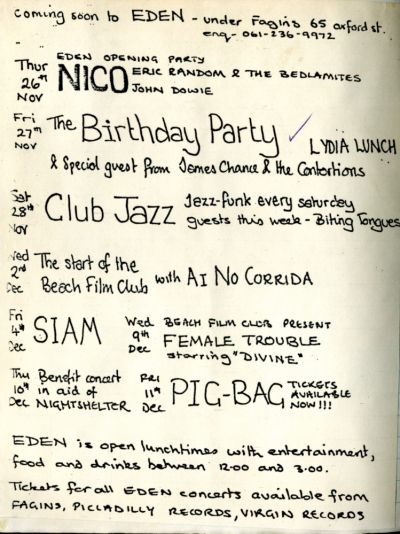 coming soon to EDEN - under Fagins 65 oxford st.
enq- 061-236-9972
EDEN OPENING PARTY
Thur 26th Nov NICO ERIC RANDOM & THE BEDLAMITES
JOHN DOWIE
Fri 27th Nov The Birthday Party ✓ LYDIA LUNCH
& Special guest from James Chance & the Contortions
Sat 28th Nov Club Jazz Jazz-funk every saturday
guests this week - Biting Tongues
Wed 2nd Dec The start of the
Beach Film Club with AI NO CORRIDA
Fri 4th Dec SIAM
Wed 9th Dec BEACH FILM CLUB PRESENT
FEMALE TROUBLE
starring "DIVINE"
Thu 10th Dec Benefit concert
in aid of
NIGHTSHELTER
Fri 11th Dec PIG-BAG TICKETS
AVAILABLE
NOW!!!
EDEN is open lunchtimes with entertainment,
food and drinks between 12.00 and 3.00.
Tickets for all EDEN concerts available from
FAGINS, PICCADILLY RECORDS, VIRGIN RECORDS